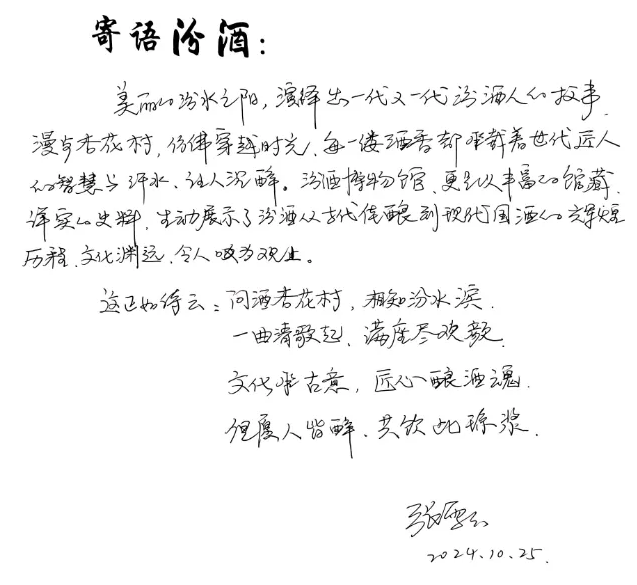 寄语汾酒：
美丽的汾水之阳，演绎出一代又一代汾酒人的故事.
漫步杏花村，仿佛穿越时光，每一缕酒香都承载着世代匠人
的智慧与汗水、让人沉醉。汾酒博物馆，更是以丰富的馆藏，
详实的史料，生动展示了汾酒从古代佳酿到现代国酒的辉煌
历程，文化渊远，令人叹为观止。
这正如诗云：问酒杏花村，相知汾水滨.
一曲清歌起，满座尽欢颜.
文化承古意，匠心酿酒魂.
但愿人皆醉、共饮此琼浆.
张
2024.10.25.